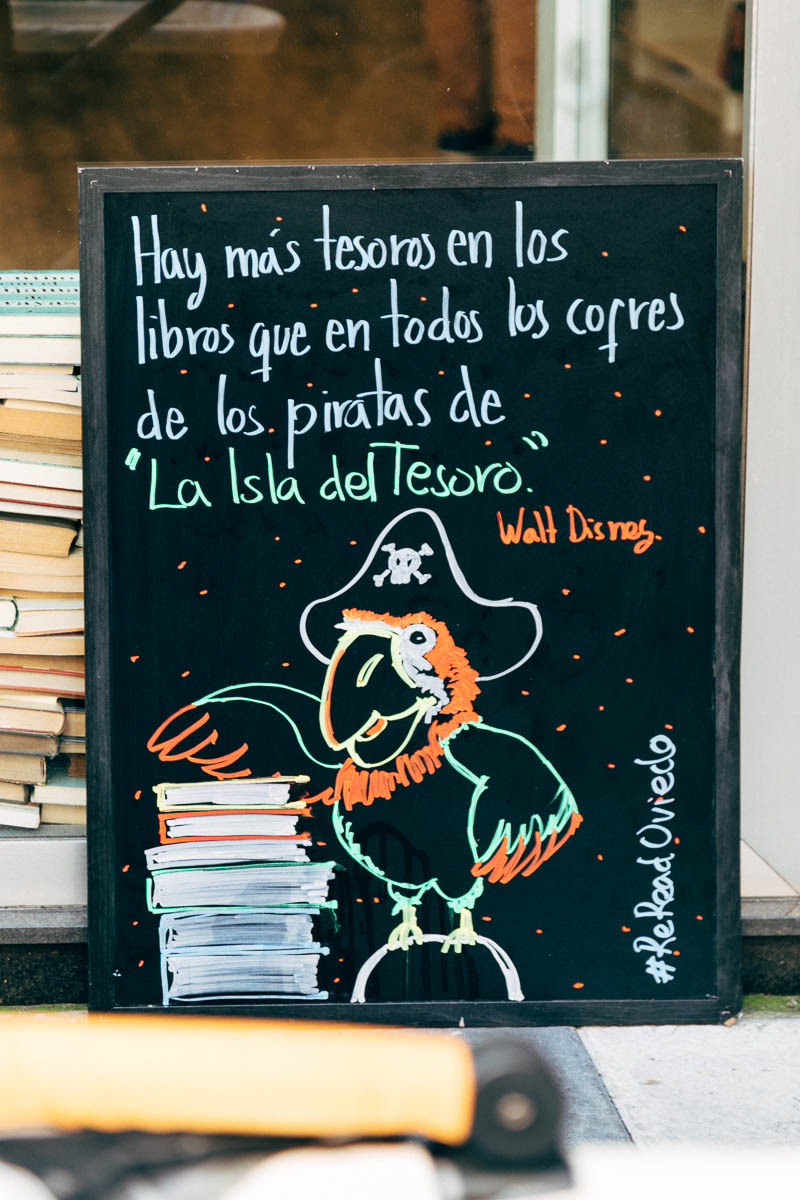 Hay más tesoros en los
libros que en todos los cofres
de los piratas de
"La Isla del Tesoro."
Walt Disney.
#ReReadOviedo